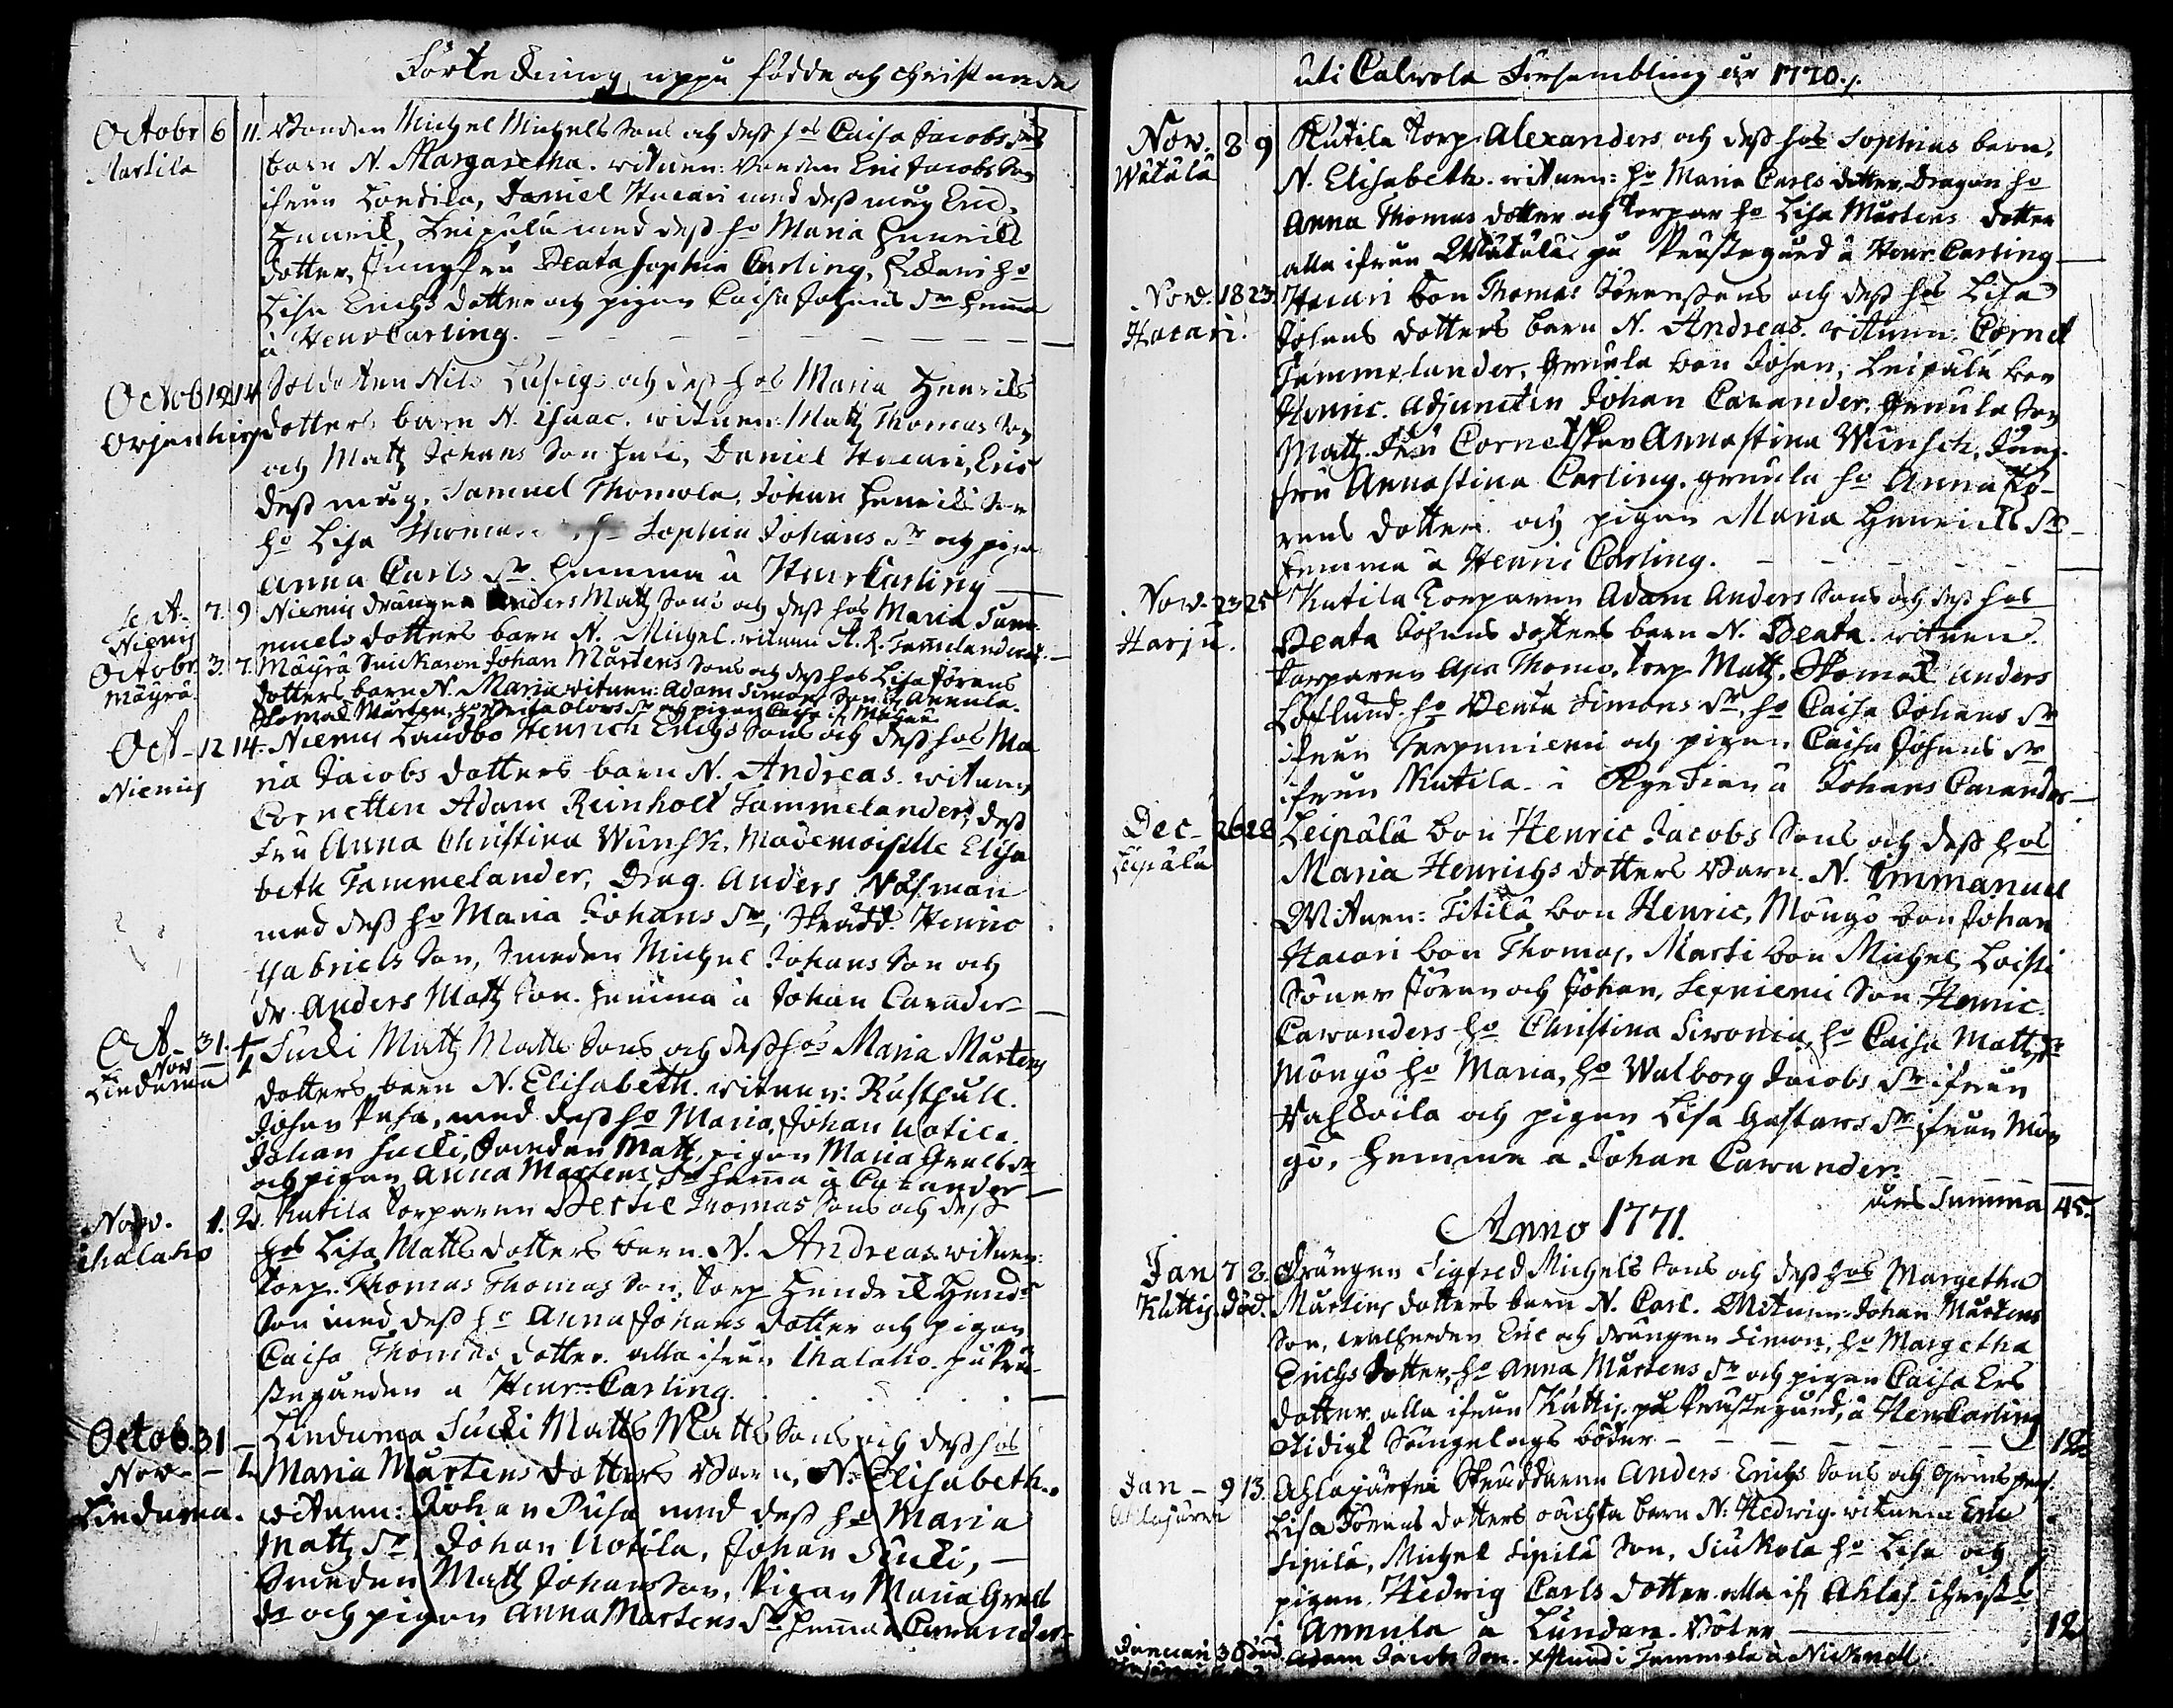 Förtekning uppå födde och christnede
Octobr 6 11. Bonden Michel Michels Sons och dess hos Caisa Jacobs drs
Martila barn N. Margaretha. witnen: Bonden Eric Jacobs Son
ifrån Londila, Daniel Hacari med dess måg Eric,
Henrik, Leipälä med dess ho Maria Henrichs
dotter, Jungfru Beata Sophia Carling, ho
Lisa Erichs dotter och pigan Caisa Johans dr hemma
a Henr Carling.
Octob 12 14 Soldaten Nils Lustigs och dess hos Maria Henrichs
Orjenhirs dotters barn N. Isaac. witnen: Matz Thomas Son
och Matz Johans Son, Daniel Hacari, Eric
dess måg, Samuel Thomola, Johan Henrichs Son
ho Lisa ho Sophia Johans dr och piga
Anna Carls dr. hemma a Henr Carling
Sept. 7. 9 Niemis drängen Anders Matz Sons och dess hos Maria Sam
Niemis muels dotters barn N. Michel. witnen A. R. Tamelander
Octobr 3. 7. Mäyrä Snickaren Johan Mårtens Sons och dess hos Lisa Görans
Mäyrä dotters barn N. Maria witnen: Adam Simons Son ifr Annula.
Skomak Mårten, ho Olovs dr och pigan Caisa if Mäyrä
Oct 12 14. Niemis Landbo Henrich Erichs Sons och dess hos Ma
Niemis ria Jacobs dotters barn N. Andreas. witnen
Cornetten Adam Reinholt Tammelander, dess
Fru Anna Christina Wunsch, Mademoiselle Elisa
beth Tammelander, Drag. Anders Nåsman
med dess ho Maria Johans dr, Skrädd. Henric
Gabriels Son, Smeden Michel Johans Son och
dr Anders Matz Son. hemma a Johan Cavander
Oct 31. Sucki Matz Matts Sons och dess hos Maria Mårtens
Nov 1
Linduma dotters barn N. Elisabeth. witnen: Rusthåll.
Johan Pusa, med dess ho Maria, Johan Uotila.
Johan Sucki, Smeden Matz, pigan Maria Grels dr
och pigan Anna Mårtens dr hemma a Cavander
Nov. 1. 2. Kutila torparen Bertil Thomas Sons och dess
Ahalaho hos Lisa Matts dotters barn N. Andreas witnen:
Torp. Thomas Thomas Son, torp Hendrik Hend:
Son med dess ho Anna Johans dotter och pigan
Caisa Thomas dotter. alla ifrån Ahalaho på Prä
stegården a Henr: Carling.
Octob. 31 Linduma Sucki Matts Matts Sons och dess hos
Nov - 1. Maria Mårtens dotters Barn, N. Elisabeth.
Linduma. witnen: Johan Pusa med dess ho Maria
Matz dr, Johan Uotila, Johan Sucki,
Smeden Matz Johans Son, Pigan Maria Grels
dr och pigan Anna Mårtens dr hemma a Cavander
uti Calvola Försambling år 1770./.
Nov. 8 9 Kutila Torp Alexanders och dess hos Sophias barn.
Wätälä N. Elisabeth. witnen: ho Maria Carls dotter, Dragon ho
Anna Thomas dotter och Torpar ho Lisa Mårtens dotter
alla ifrån Wätälä på Prästegård a Henr. Carling
Nov. 18 23 Hacari bon Thomas Görenssons och dess hos Lisa
Hacari. Johans dotters barn N. Andreas. witnen. Cornet
Tammelander, bon Johan, Leipälä bon
Henric. Adjuncten Johan Cavander, Son
Matz. Fru Cornetskan Annastina Wunsch, Jung-
fru Annastina Carling. ho Anna Gö-
rens dotter och pigan Maria Henrichs dr
hemma a Henric Carling.
Nov. 23 25 Kutila Torparen Adam Anders Sons och dess hos
Harju. Beata Johans dotters barn N. Beata. witnen.
torparen Apa Thomo. torp Matz. Skomak Anders
Löflund. ho Beata Simons dr, ho Caisa Johans dr
ifrån Terpeniemi och pigan Caisa Johans dr
ifrån Kutila i Kyrckian a Johans Cavander
Dec 26 28 Leipälä bon Henric Jacobs Sons och dess hos
Leipälä Maria Henrichs dotters Barn. N. Immanuel
Witnen: Titilä bon Henric, Möngö bon Johan
Hacari bon Thomas, Marti bon Michel, Loisti
Söner Göran och Johan, Lepniemi Son Henric
Cavanders ho Christina Sivonia, ho Caisa Matz dr
Möngö ho Maria, ho Walborg Jacobs dr ifrån
Wahkoila och pigan Lisa Gustavs dr ifrån Mön
gö, hemma a Johan Cavander.
års Summa 45.
Anno 1771.
Jan 7 8. Drängen Sigfred Michels Sons och dess hos Margetha
Kuttis död. Mårtens dotters barn N. Carl. Witnen: Johan Mårtens
Son, Eric och drängen Simon, ho Margetha
Erichs dotter, ho Anna Mårtens dr och pigan Caisa Ers
dotter alla ifrån Kuttis. på Prästegård, a Henr Carling
otidigt Sängelags böter 12.
Jan - 9 13. Ahlajärfvi Skräddaren Anders Erichs Sons och
Ahlajärvi Lisa Görens dotters oächta barn N. Hedwig. witnen Eric
Sipilä, Michel Sipilä Son, Siukola ho Lisa och
pigan Hedwig Carls dotter alla if Ahlaj. christ
i Annula a Lundan. Böter 12
Januari 30 död Adam Jacobs Son. i Tammela a Nicknell.